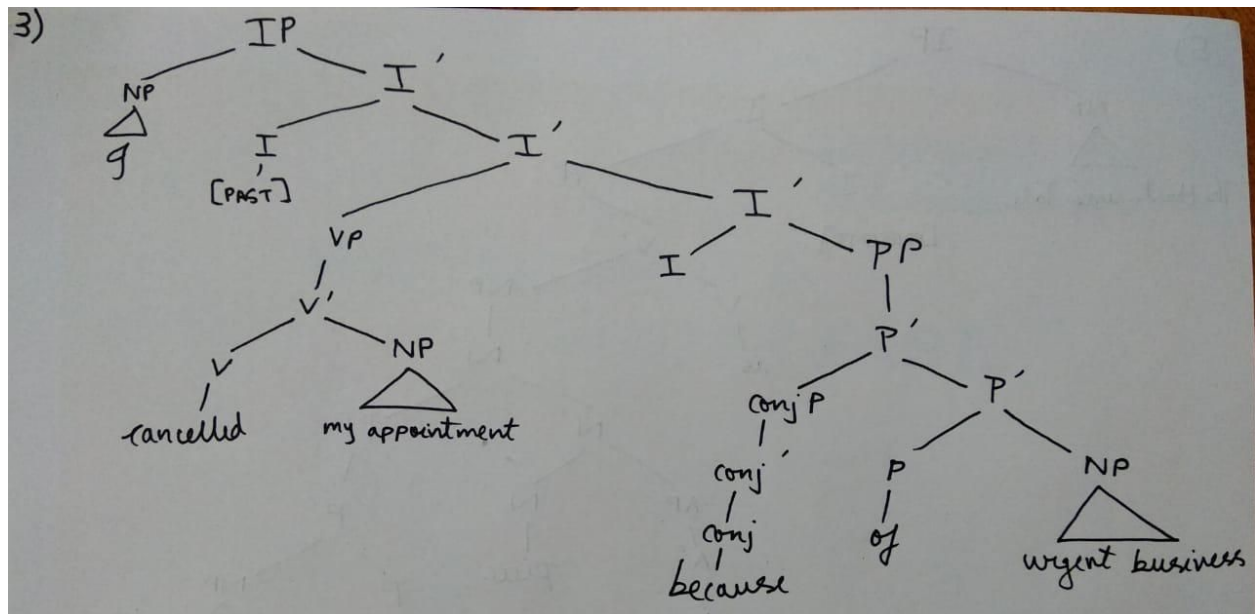 3)
IP
NP I'
I I I'
[PAST]
VP I'
I PP
V'
V NP P'
conjP P'
cancelled my appointment
conj' P NP
conj of urgent business
because